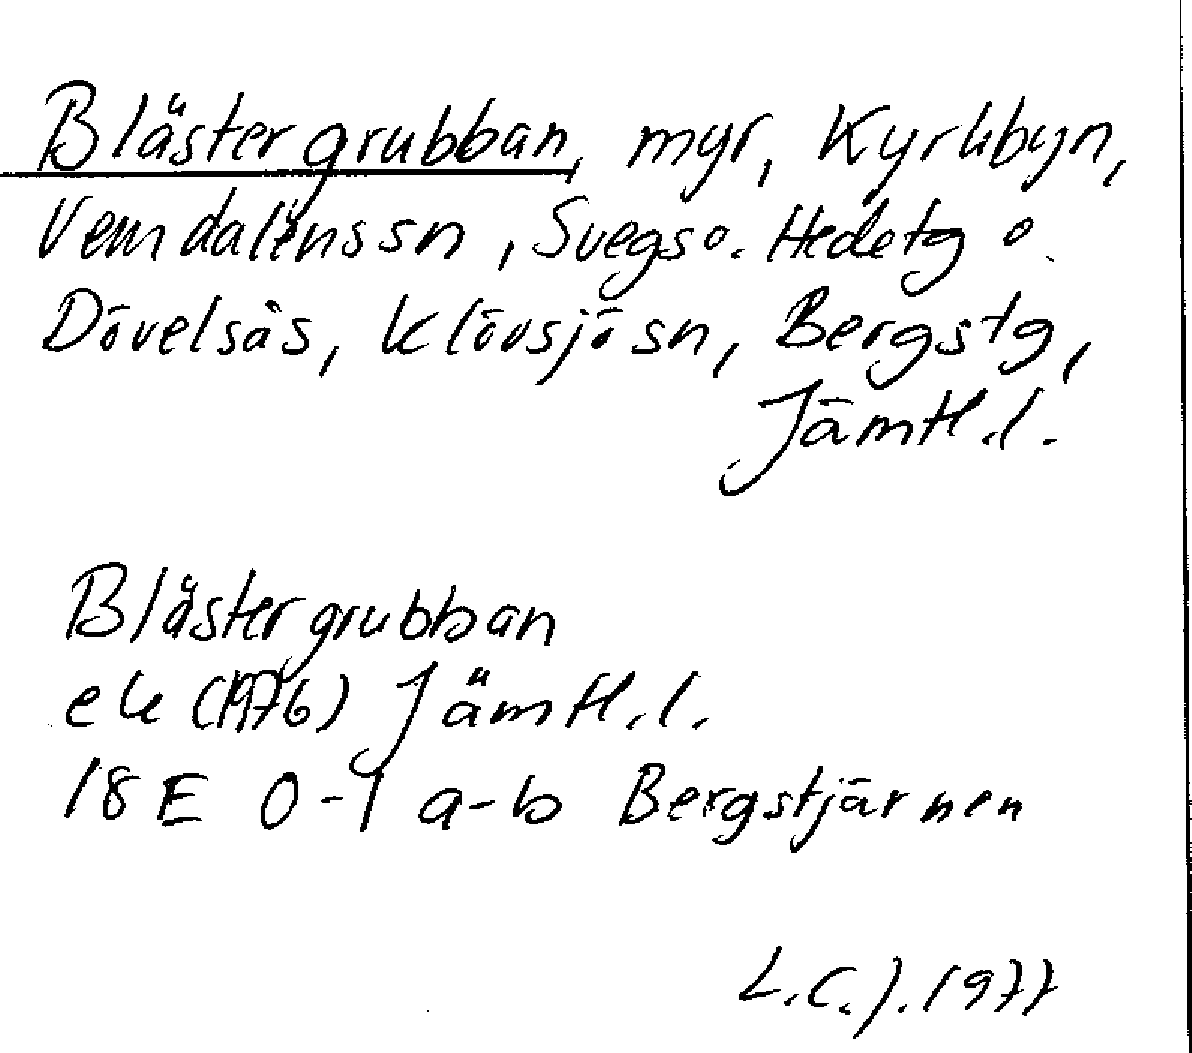 Blästergrubban, myr, Kyrkbyn,
Vemdalens sn, Svegs o. Hede tg o
Dövelsås, Klövsjö sn, Bergs tg,
Jämtl.l.
Blästergrubban
ek (1976) Jämtl.l.
18E 0-1 a-b Bergstjärnen
L.C.J. 1977